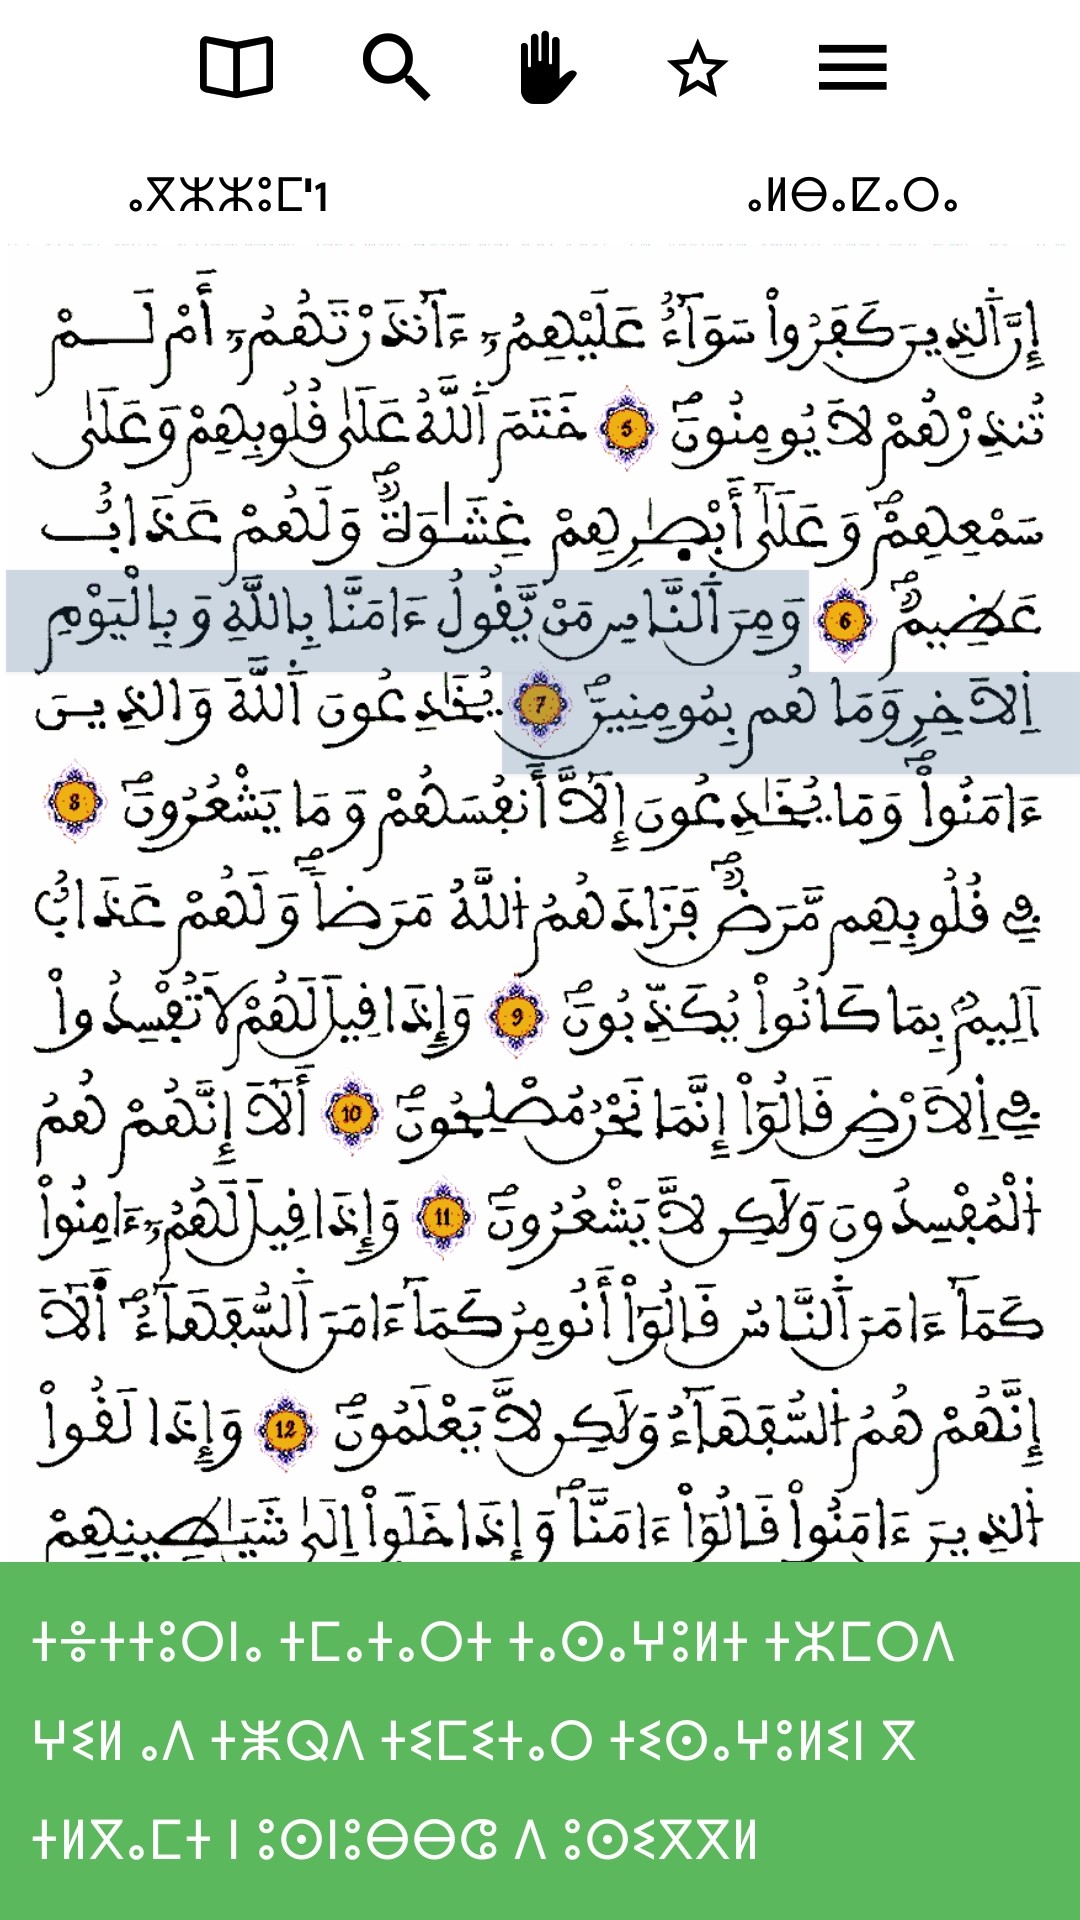 ⴰⴳⵣⵣⵓⵎ'1 ⴰⵍⴱⴰⵇⴰⵔⴰ
إِنَّ اَ۬لذِينَ كَفَرُواْ سَوَآءٌ عَلَيْهِمُۥٓ ءَآنذَرْتَهُمُۥٓ أَمْ لَمْ
تُنذِرْهُمْ لَا يُومِنُونَۖ 5 خَتَمَ اَ۬للَّهُ عَلَىٰ قُلُوبِهِمْ وَعَلَىٰ
سَمْعِهِمْۖ وَعَلَىٰٓ أَبْصٰ۪رِهِمْ غِشَٰوَةٞۖ وَلَهُمْ عَذَابٌ
عَظِيمٞۖ 6 وَمِنَ اَ۬لنَّاسِ مَنْ يَّقُولُ ءَامَنَّا بِاللَّهِ وَبِالْيَوْمِ
اِ۬لَاخِرِ وَمَا هُم بِمُومِنِينَۖ 7 يُخَٰدِعُونَ اَ۬للَّهَ وَالذِينَ
ءَامَنُواْۖ وَمَا يُخَٰدِعُونَ إِلَّآ أَنفُسَهُمْ وَمَا يَشْعُرُونَۖ 8
فِے قُلُوبِهِم مَّرَضٞۖ فَزَادَهُمُ اُ۬للَّهُ مَرَضاٗۖ وَلَهُمْ عَذَابٌ
اَلِيمُۢ بِمَا كَانُواْ يُكَذِّبُونَۖ 9 وَإِذَا قِيلَ لَهُمْ لَا تُفْسِدُواْ
فِے اِ۬لَارْضِ قَالُوٓاْ إِنَّمَا نَحْنُ مُصْلِحُونَۖ 10 أَلَآ إِنَّهُمْ هُمُ
اُ۬لْمُفْسِدُونَ وَلَٰكِن لَّا يَشْعُرُونَۖ 11 وَإِذَا قِيلَ لَهُمُۥٓ ءَامِنُواْ
كَمَآ ءَامَنَ اَ۬لنَّاسُ قَالُوٓاْ أَنُومِنُ كَمَآ ءَامَنَ اَ۬لسُّفَهَآءُۖ اَ۬لَآ
إِنَّهُمْ هُمُ اُ۬لسُّفَهَآءُ وَلَٰكِن لَّا يَعْلَمُونَۖ 12 وَإِذَا لَقُواْ
اُ۬لذِينَ ءَامَنُواْ قَالُوٓاْ ءَامَنَّاۖ وَإِذَا خَلَوِاْ اِلَىٰ شَيَٰطِينِهِمْ
ⵜⵓⵜⵜⵓⵔⵏⴰ ⵜⵎⴰⵜⴰⵔⵜ ⵜⴰⵙⴰⵖⵓⵍⵜ ⵜⵣⵎⵔⴷ
ⵖⵉⵍ ⴰⴷ ⵜⵥⵕⴷ ⵜⵉⵎⵉⵜⴰⵔ ⵜⵉⵙⴰⵖⵓⵍⵉⵏ ⴳ
ⵜⵍⴳⴰⵎⵜ ⵏ ⵓⵙⵏⵓⴱⴱⵛ ⴷ ⵓⵙⵉⴳⴳⵍ